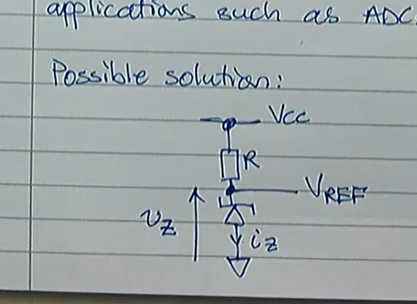 applications such as ADC.
Possible solution:
Vcc
R
VREF
vz
iz